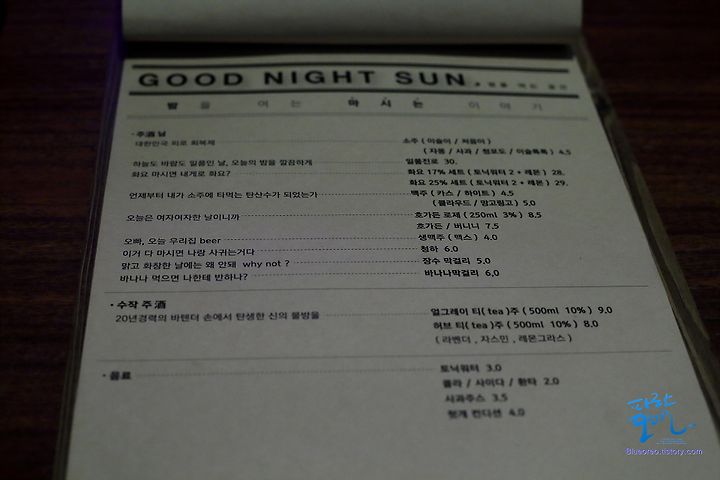 GOOD NIGHT SUN
밤 을 여 는 마 시 는 이 야 기
· 주酒 님
대한민국 피로 회복제 소주 ( 이슬이 / 처음이 )
( 자몽 / 사과 / 청포도 / 이슬톡톡 ) 4.5
하늘도 바람도 일품인 날, 오늘의 밤을 깔끔하게 일품진로 30.
화요 마시면 내게로 화요? 화요 17% 세트 ( 토닉워터 2 + 레몬 ) 28.
화요 25% 세트 ( 토닉워터 2 + 레몬 ) 29.
언제부터 내가 소주에 타먹는 탄산수가 되었는가 맥주 ( 카스 / 하이트 ) 4.5
( 클라우드 / 망고링고 ) 5.0
오늘은 여자여자한 날이니까 호가든 로제 ( 250ml 3% ) 8.5
호가든 / 버니니 7.5
오빠, 오늘 우리집 beer 생맥주 ( 맥스 ) 4.0
이거 다 마시면 나랑 사귀는거다 청하 6.0
맑고 화창한 날에는 왜 안돼 why not ? 장수 막걸리 5.0
바나나 먹으면 나한테 반하나? 바나나막걸리 6,0
· 수작 주 酒 얼그레이 티( tea )주 ( 500ml 10% ) 9.0
20년경력의 바텐더 손에서 탄생한 신의 물방울 허브 티( tea )주 ( 500ml 10% ) 8.0
( 라벤더 , 쟈스민 , 레몬그라스 )
· 음료 토닉워터 3.0
콜라 / 사이다 / 환타 2.0
사과주스 3.5
헛개 컨디션 4.0
Blueoreo.tistory.com